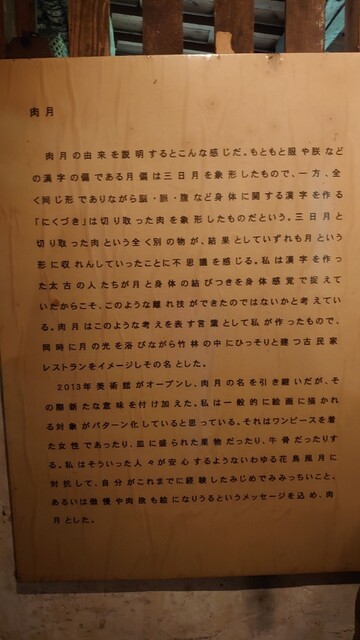 肉月
肉月の由来を説明するとこんな感じだ。もともと服や朕など
の漢字の偏である月偏は三日月を象形したもので、一方、全
く同じ形でありながら脳・脈・腹など身体に関する漢字を作る
「にくづき」は切り取った肉を象形したものだという。三日月と
切り取った肉という全く別の物が、結果としていずれも月という
形に収れんしていったことに不思議を感じる。私は漢字を作っ
た太古の人たちが月と身体の結びつきを身体感覚で捉えて
いたからこそ、このような離れ技ができたのではないかと考えてい
る。肉月はこのような考えを表す言葉として私が作ったもので、
同時に月の光を浴びながら竹林の中にひっそりと建つ古民家
レストランをイメージしその名とした。
2013年美術館がオープンし、肉月の名を引き継いだが、そ
の際新たな意味を付け加えた。私は一般的に絵画に描かれ
る対象がパターン化していると思っている。それはワンピースを着
た女性であったり、皿に盛られた果物だったり、牛骨だったりす
る。私はそういった人々が安心するようないわゆる花鳥風月に
対抗して、自分がこれまでに経験したみじめでみみっちいこと、
あるいは傲慢や肉欲も絵になりうるというメッセージを込め、肉
月とした。